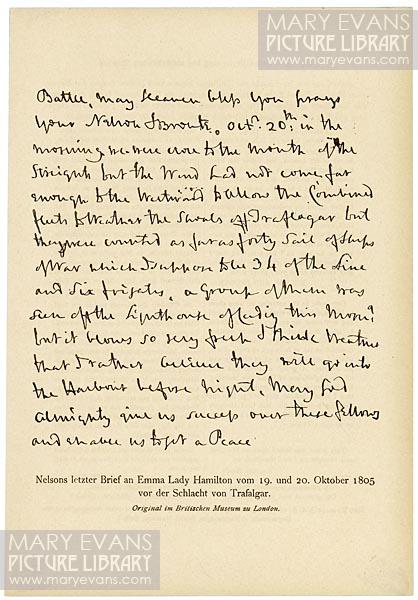 MARY EVANS
PICTURE LIBRARY
www.maryevans.com
Battle, may Heaven bless you prays
your Nelson & Bronte, Octr. 20th: in the
morning we were close to the mouth of the
Streights but the Wind had not come far
enough to the Westward to allow the Combined
fleets to Weather the Shoals off Traflagar but
they were counted as far as forty Sail of Ships
of War which I suppose to be 34 of the Line
and Six frigates, a Group of them was
seen off the Lighthouse of Cadiz this Morng
but it blows so very fresh & thick weather
that I rather believe they will go into
the Harbour before night, May God
almighty give us success over these fellows
and enable us to get a Peace
Nelsons letzter Brief an Emma Lady Hamilton vom 19. und 20. Oktober 1805
vor der Schlacht von Trafalgar.
Original im Britischen Museum zu London.
MARY EVANS
PICTURE LIBRARY
www.maryevans.com
MARY EVANS
PICTURE LIBRARY
www.maryevans.com